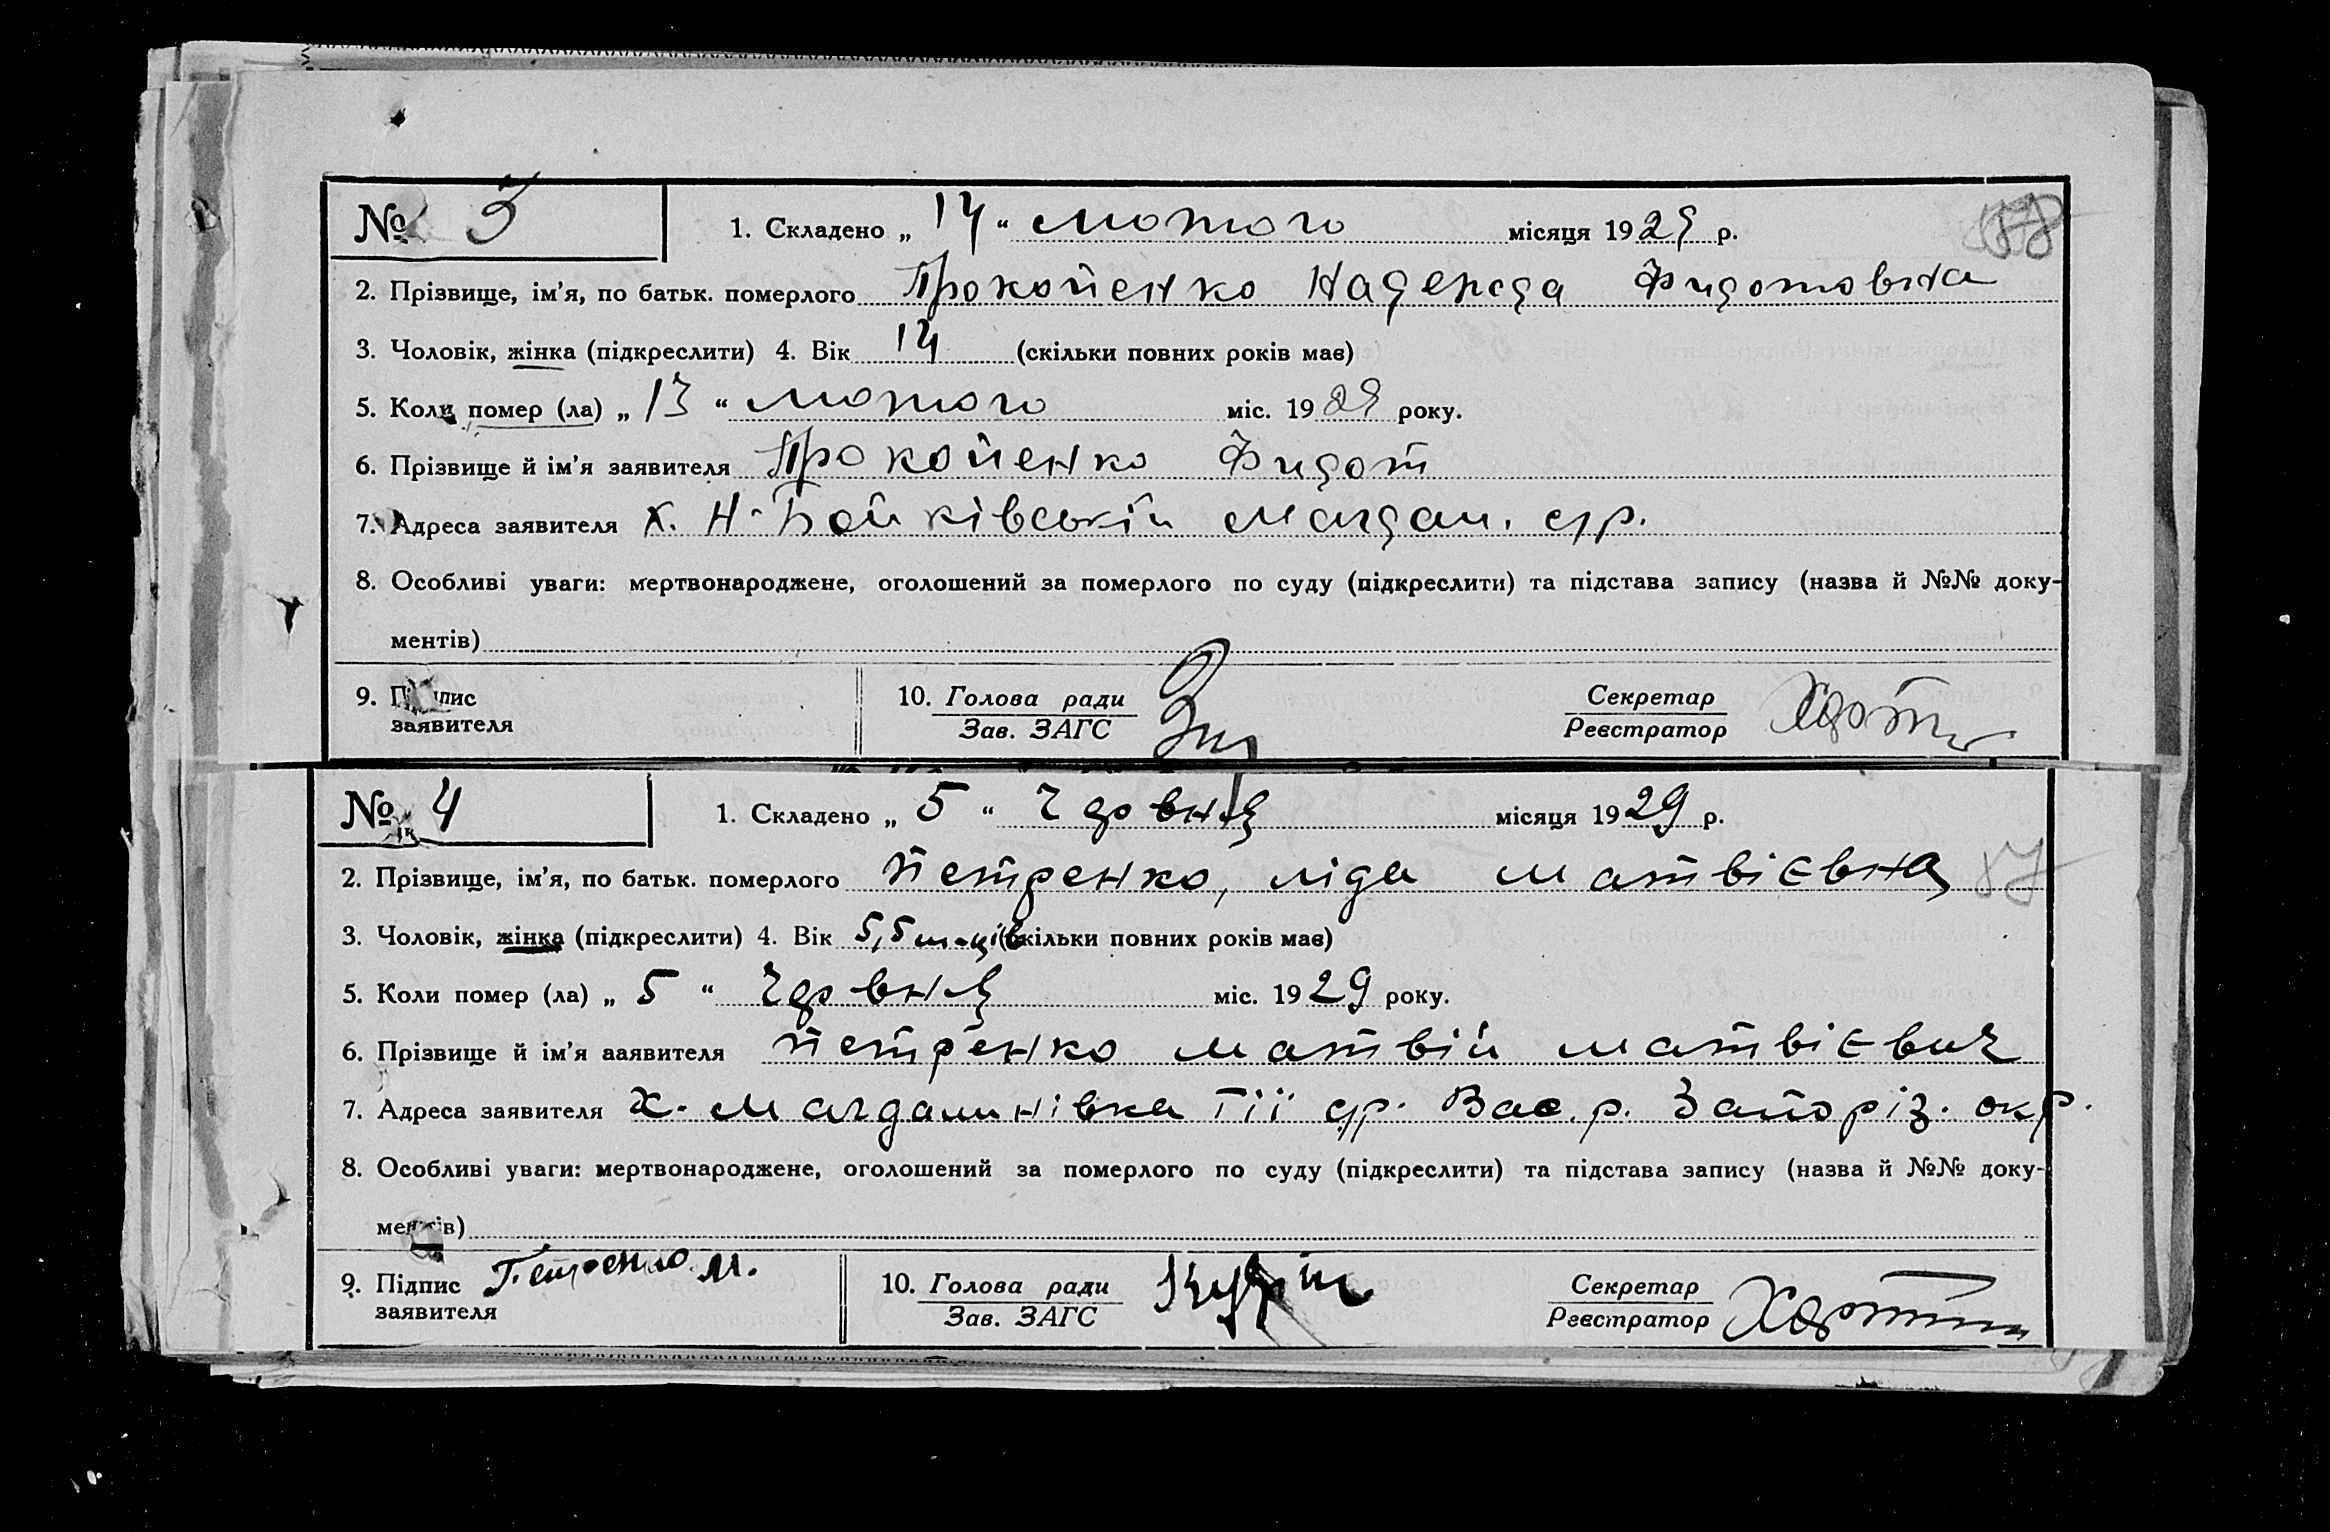 № 3 1. Складено „ 14 “ лютого місяця 1929 р.
2. Прізвище, ім’я, по батьк. померлого Прокопенко Надежда Фидотовна
3. Чоловік, жінка (підкреслити) 4. Вік 14 (скільки повних років має)
5. Коли помер (ла) „ 13 “ лютого міс. 1929 року.
6. Прізвище й ім’я заявителя Прокопенко Фидот
7. Адреса заявителя х. Н-Бойківський Магдал. с/р.
8. Особливі уваги: мертвонароджене, оголошений за померлого по суду (підкреслити) та підстава запису (назва й №№ доку-
ментів)
9. Підпис заявителя 10. Голова ради Зав. ЗАГС Секретар Реєстратор
№ 4 1. Складено „ 5 “ червня місяця 1929 р.
2. Прізвище, ім’я, по батьк. померлого Петренко, Ліда Матвієвна 57
3. Чоловік, жінка (підкреслити) 4. Вік 5,5 м-ців (скільки повних років має)
5. Коли помер (ла) „ 5 “ червня міс. 1929 року.
6. Прізвище й ім’я заявителя Петренко Матвій Матвієвич
7. Адреса заявителя х. Магдалинівка Тії с/р. Вас. р. Запоріз. окр.
8. Особливі уваги: мертвонароджене, оголошений за померлого по суду (підкреслити) та підстава запису (назва й №№ доку-
ментів)
9. Підпис заявителя Петренко М. 10. Голова ради Зав. ЗАГС Секретар Реєстратор